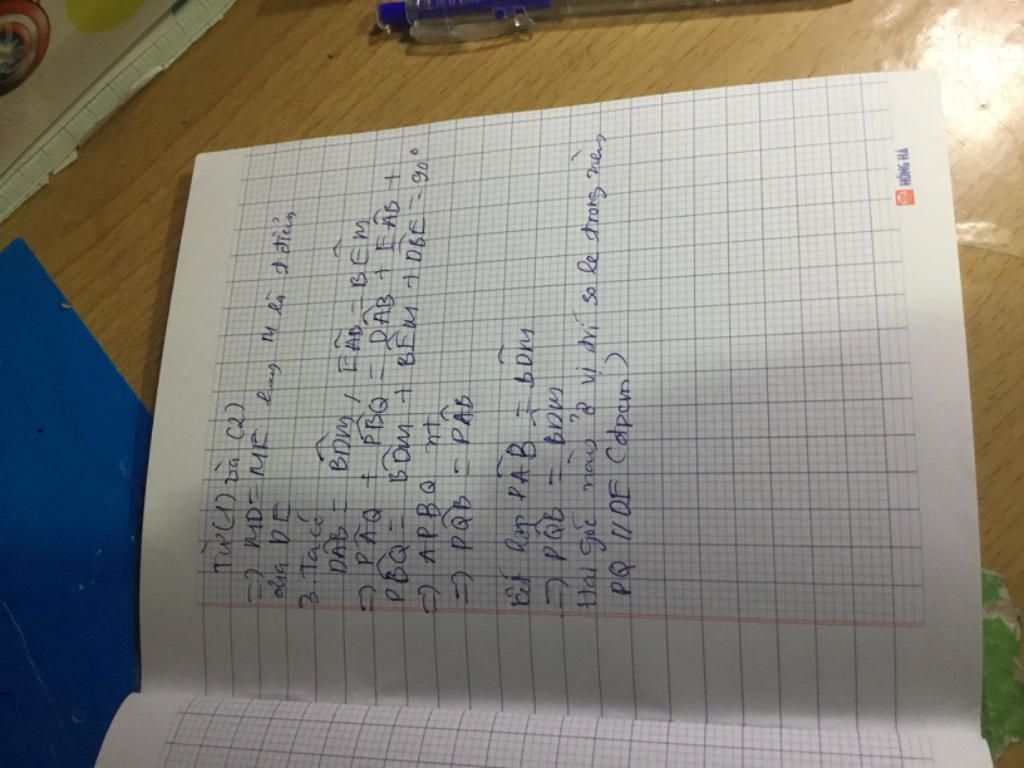 Từ (1) và (2)
=) MD = ME hay M là t điểm
của DE
3. Ta có
DAB̂ = BDM̂, EAB̂ = BEM̂
=) PAQ̂ + PBQ̂ = DAB̂ + EAB̂ +
PBQ̂ = BDM̂ + BEM̂ + DBÊ = 90°
=) APBQ nt
=) PQB̂ = PAB̂
Kết hợp PAB̂ = BDM̂
=) PQB̂ = BDM̂
Hai góc này ở vị trí so le trong nên
PQ // DE (đpcm)
HỒNG HÀ